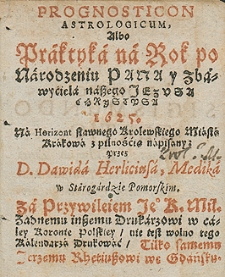 PROGNOSTICON
ASTROLOGICUM,
Albo
Práktyká ná Rok po
Národzeniu PANA y Zbá-
wyćielá nászego JEZUSA
CHRYSTUSA
1625.
Ná Horizont sławnego Krolewskiego Miástá
Krákowá z pilnośćią nápisány
Przez
D. Dawidá Herliciusá, Mediká
w Stárogárdźie Pomorskim.
Zá Przywileiem Je° K. Mil.
Żadnemu inszemu Drukárzowi w cá-
łey Koronie Polskiey / nie iest wolno tego
Kálendarzá Drukowáć / Tylko sámemu
Jerzemu Rhetiusowi we Gdańsku